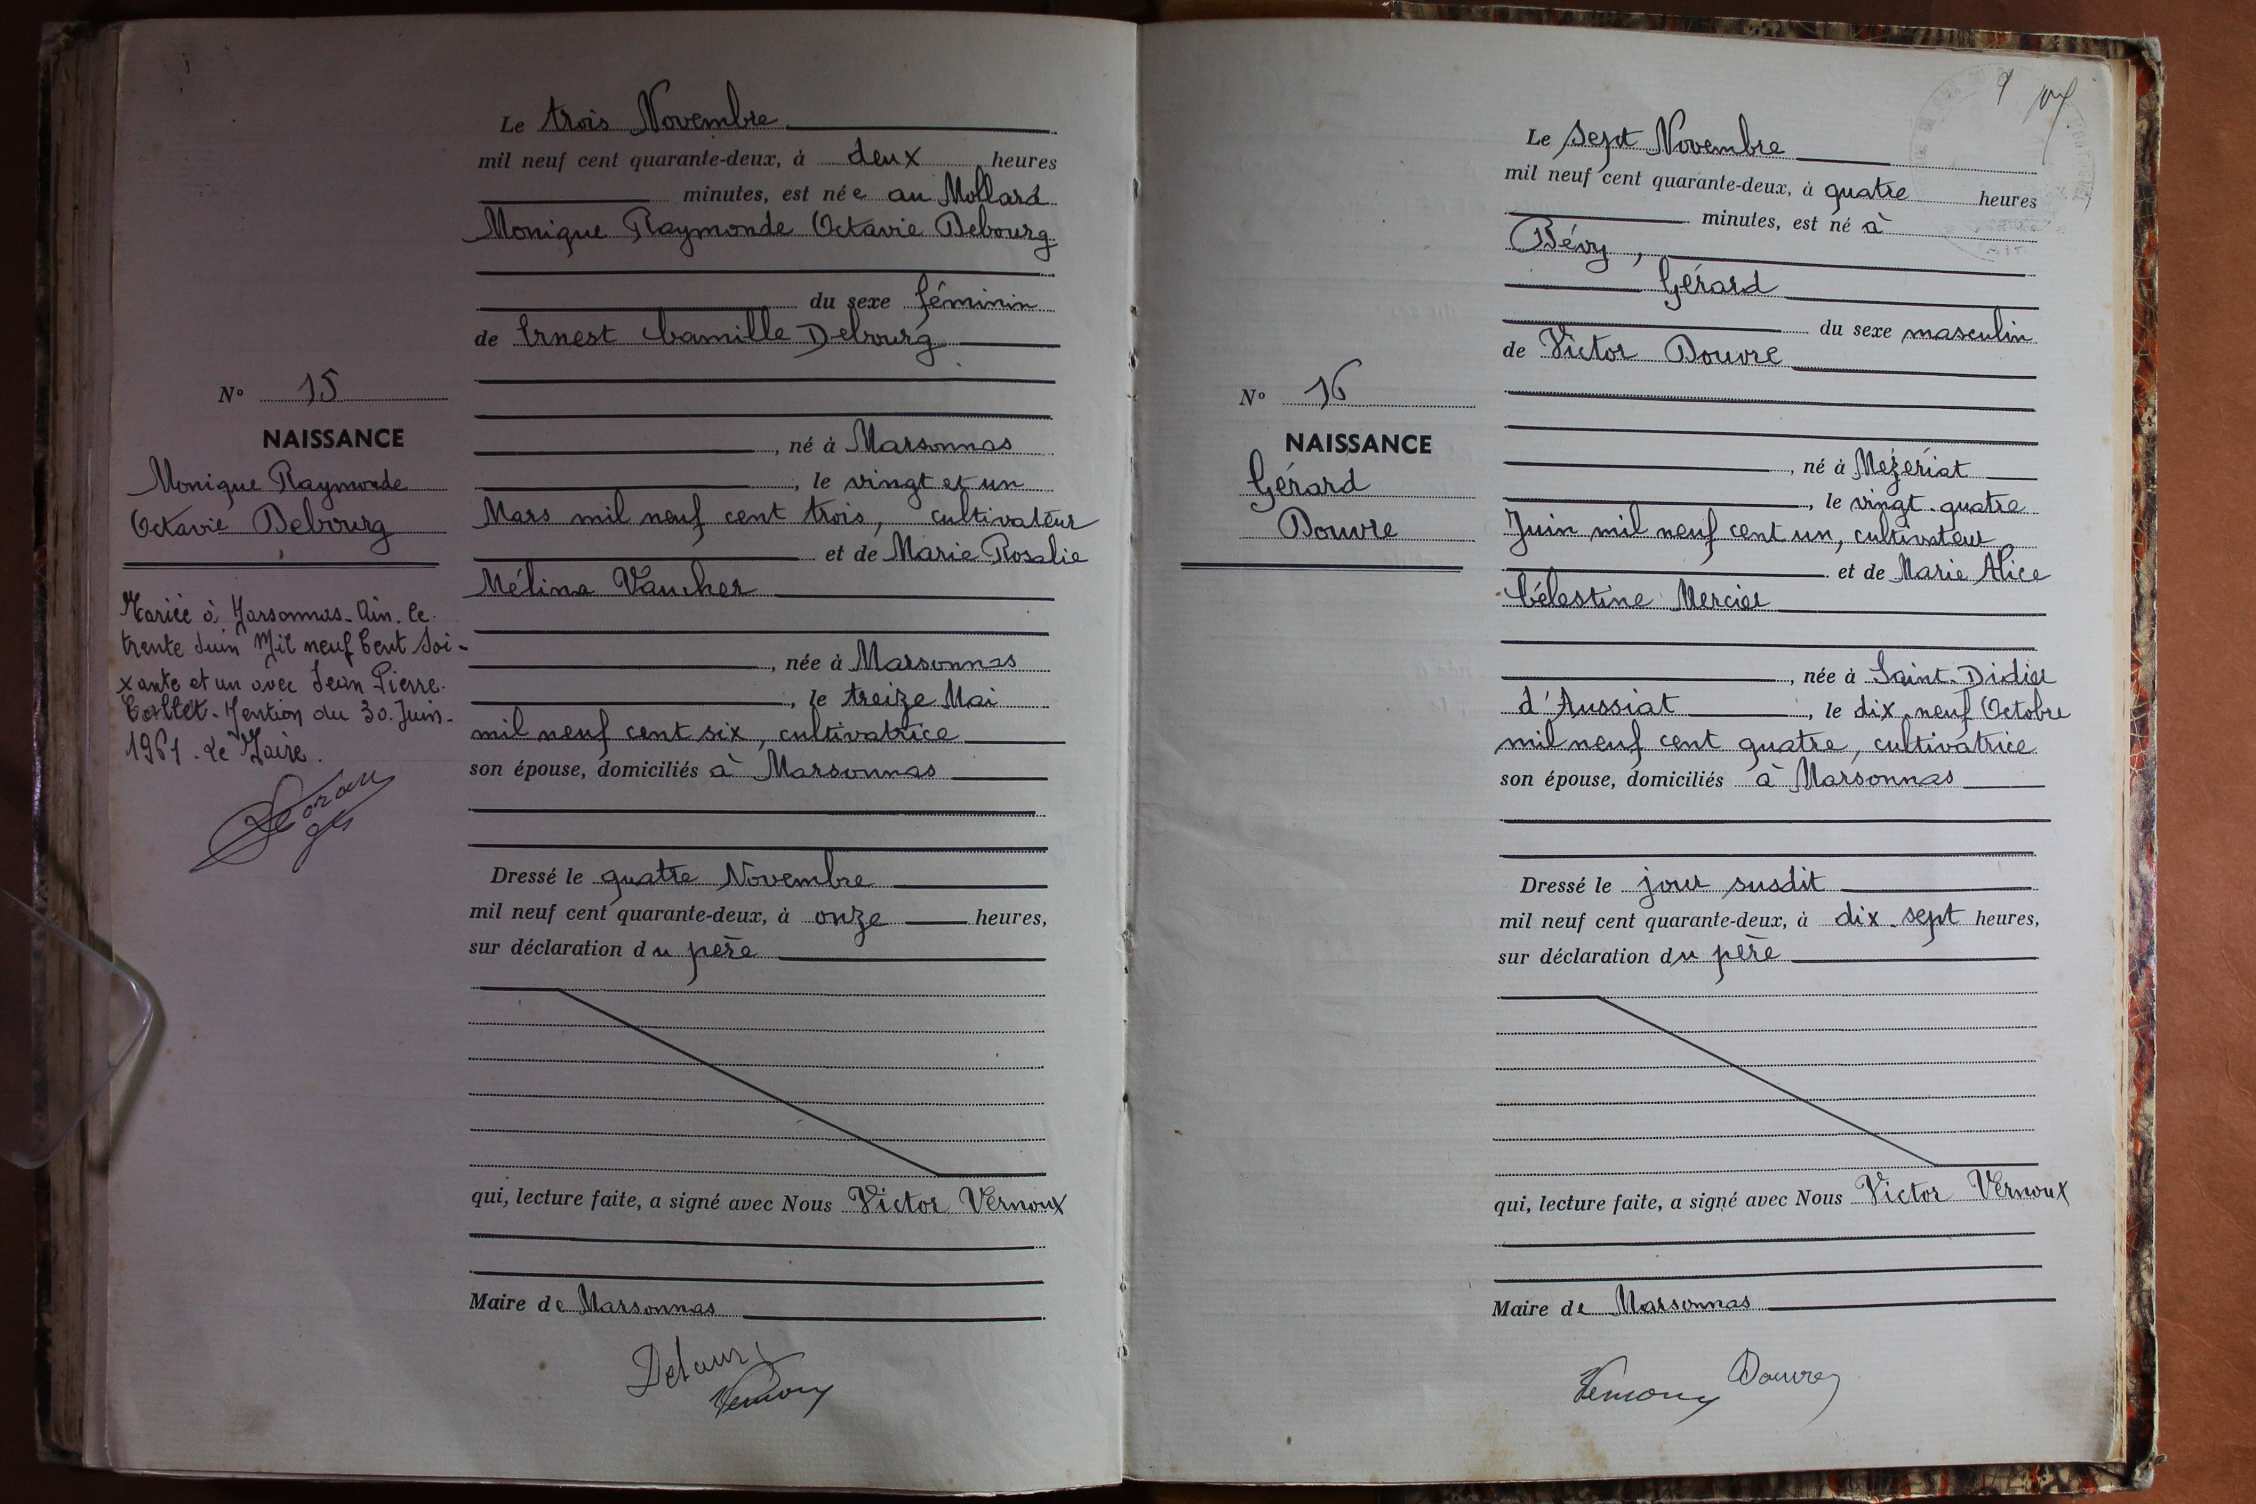 Le trois Novembre
mil neuf cent quarante-deux, à deux heures
minutes, est née au Mollard
Monique Raymonde Octavie Debourg
du sexe féminin
de Ernest Camille Debourg
né à Marsonnas
, le vingt et un
Mars mil neuf cent trois, cultivateur
et de Marie Rosalie
Mélina Vaucher
, née à Marsonnas
, le treize Mai
mil neuf cent six, cultivatrice
son épouse, domiciliés à Marsonnas
Dressé le quatre Novembre
mil neuf cent quarante-deux, à onze heures,
sur déclaration du père
qui, lecture faite, a signé avec Nous Victor Vernoux
Maire de Marsonnas
Vernoux
No 15
NAISSANCE
Monique Raymonde
Octavie Debourg
Mariée à Marsonnas. Ain. le
trente Juin Mil neuf Cent Soi-
xante et un avec Jean Pierre
Mention du 30. Juin.
1961. Le Maire.
9
Le sept Novembre
mil neuf cent quarante-deux, à quatre heures
minutes, est né à
Bévy,
Gérard
du sexe masculin
de Victor Douvre
, né à Mézériat
, le vingt-quatre
Juin mil neuf cent un, cultivateur
et de Marie Alice
Célestine Mercier
, née à Saint-Didier
d'Aussiat, le dix-neuf Octobre
mil neuf cent quatre, cultivatrice
son épouse, domiciliés à Marsonnas
Dressé le jour susdit
mil neuf cent quarante-deux, à dix-sept heures,
sur déclaration du père
qui, lecture faite, a signé avec Nous Victor Vernoux
Maire de Marsonnas
Vernoux Douvre
No 16
NAISSANCE
Gérard
Douvre